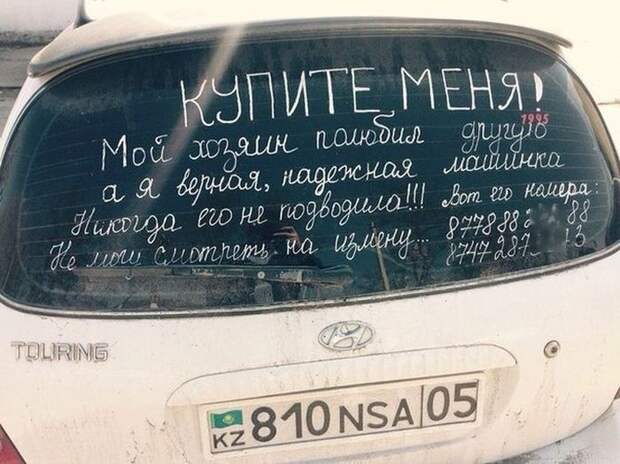 КУПИТЕ МЕНЯ!
1995
Мой хозяин полюбил другую
а я верная, надежная машинка
Никогда его не подводила!!! Вот его номера:
Не могу смотреть на измену... 8778882 88
8747287 13
TOURING
KZ 810 NSA 05